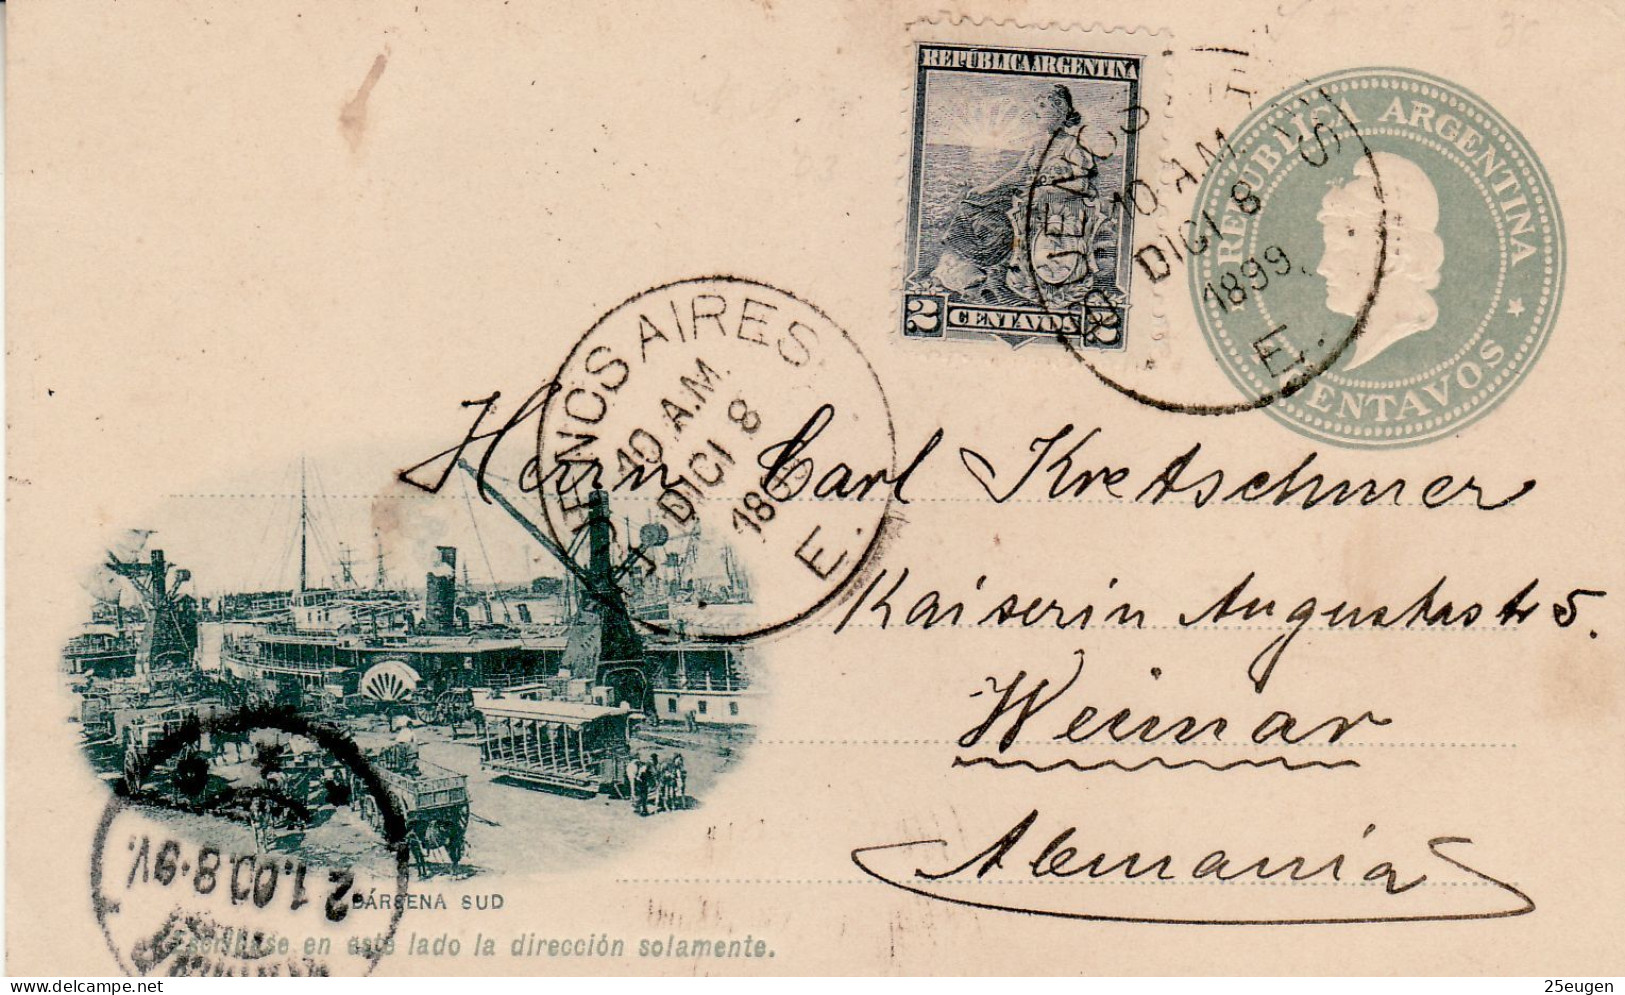 REPÚBLICA ARGENTINA
2 CENTAVOS 2
REPUBLICA ARGENTINA
CENTAVOS
BUENOS AIRES
10 A.M.
DICI 8
1899
E.
BUENOS AIRES
10 A.M.
DICI 8
1899
E.
Herrn Carl Kretschmer
Kaiserin Augustastr 5.
Weimar
Alemania
2.1.00.8-9V.
DÁRSENA SUD
Escribase en este lado la dirección solamente.
www.delcampe.net
25eugen